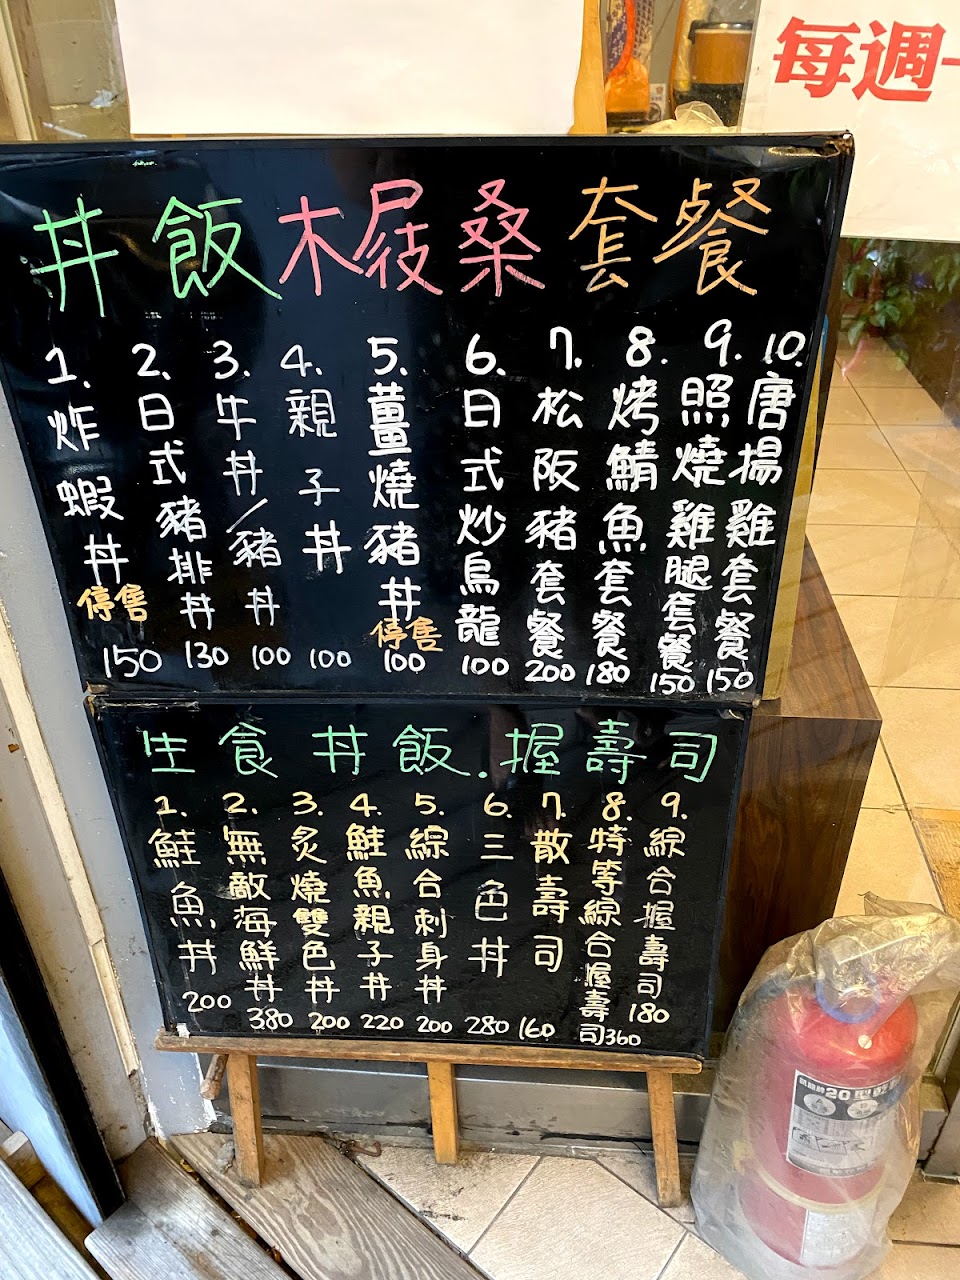 每週一
丼飯木屐桑套餐
1.炸蝦丼停售150
2.日式豬排丼130
3.牛丼/豬丼100
4.親子丼100
5.薑燒豬丼停售100
6.日式炒烏龍100
7.松阪豬套餐200
8.烤鯖魚套餐180
9.照燒雞腿套餐150
10.唐揚雞套餐150
生食丼飯.握壽司
1.鮭魚丼200
2.無敵海鮮丼380
3.炙燒雙色丼200
4.鮭魚親子丼220
5.綜合刺身丼200
6.三色丼280
7.散壽司160
8.特等綜合握壽司360
9.綜合握壽司180